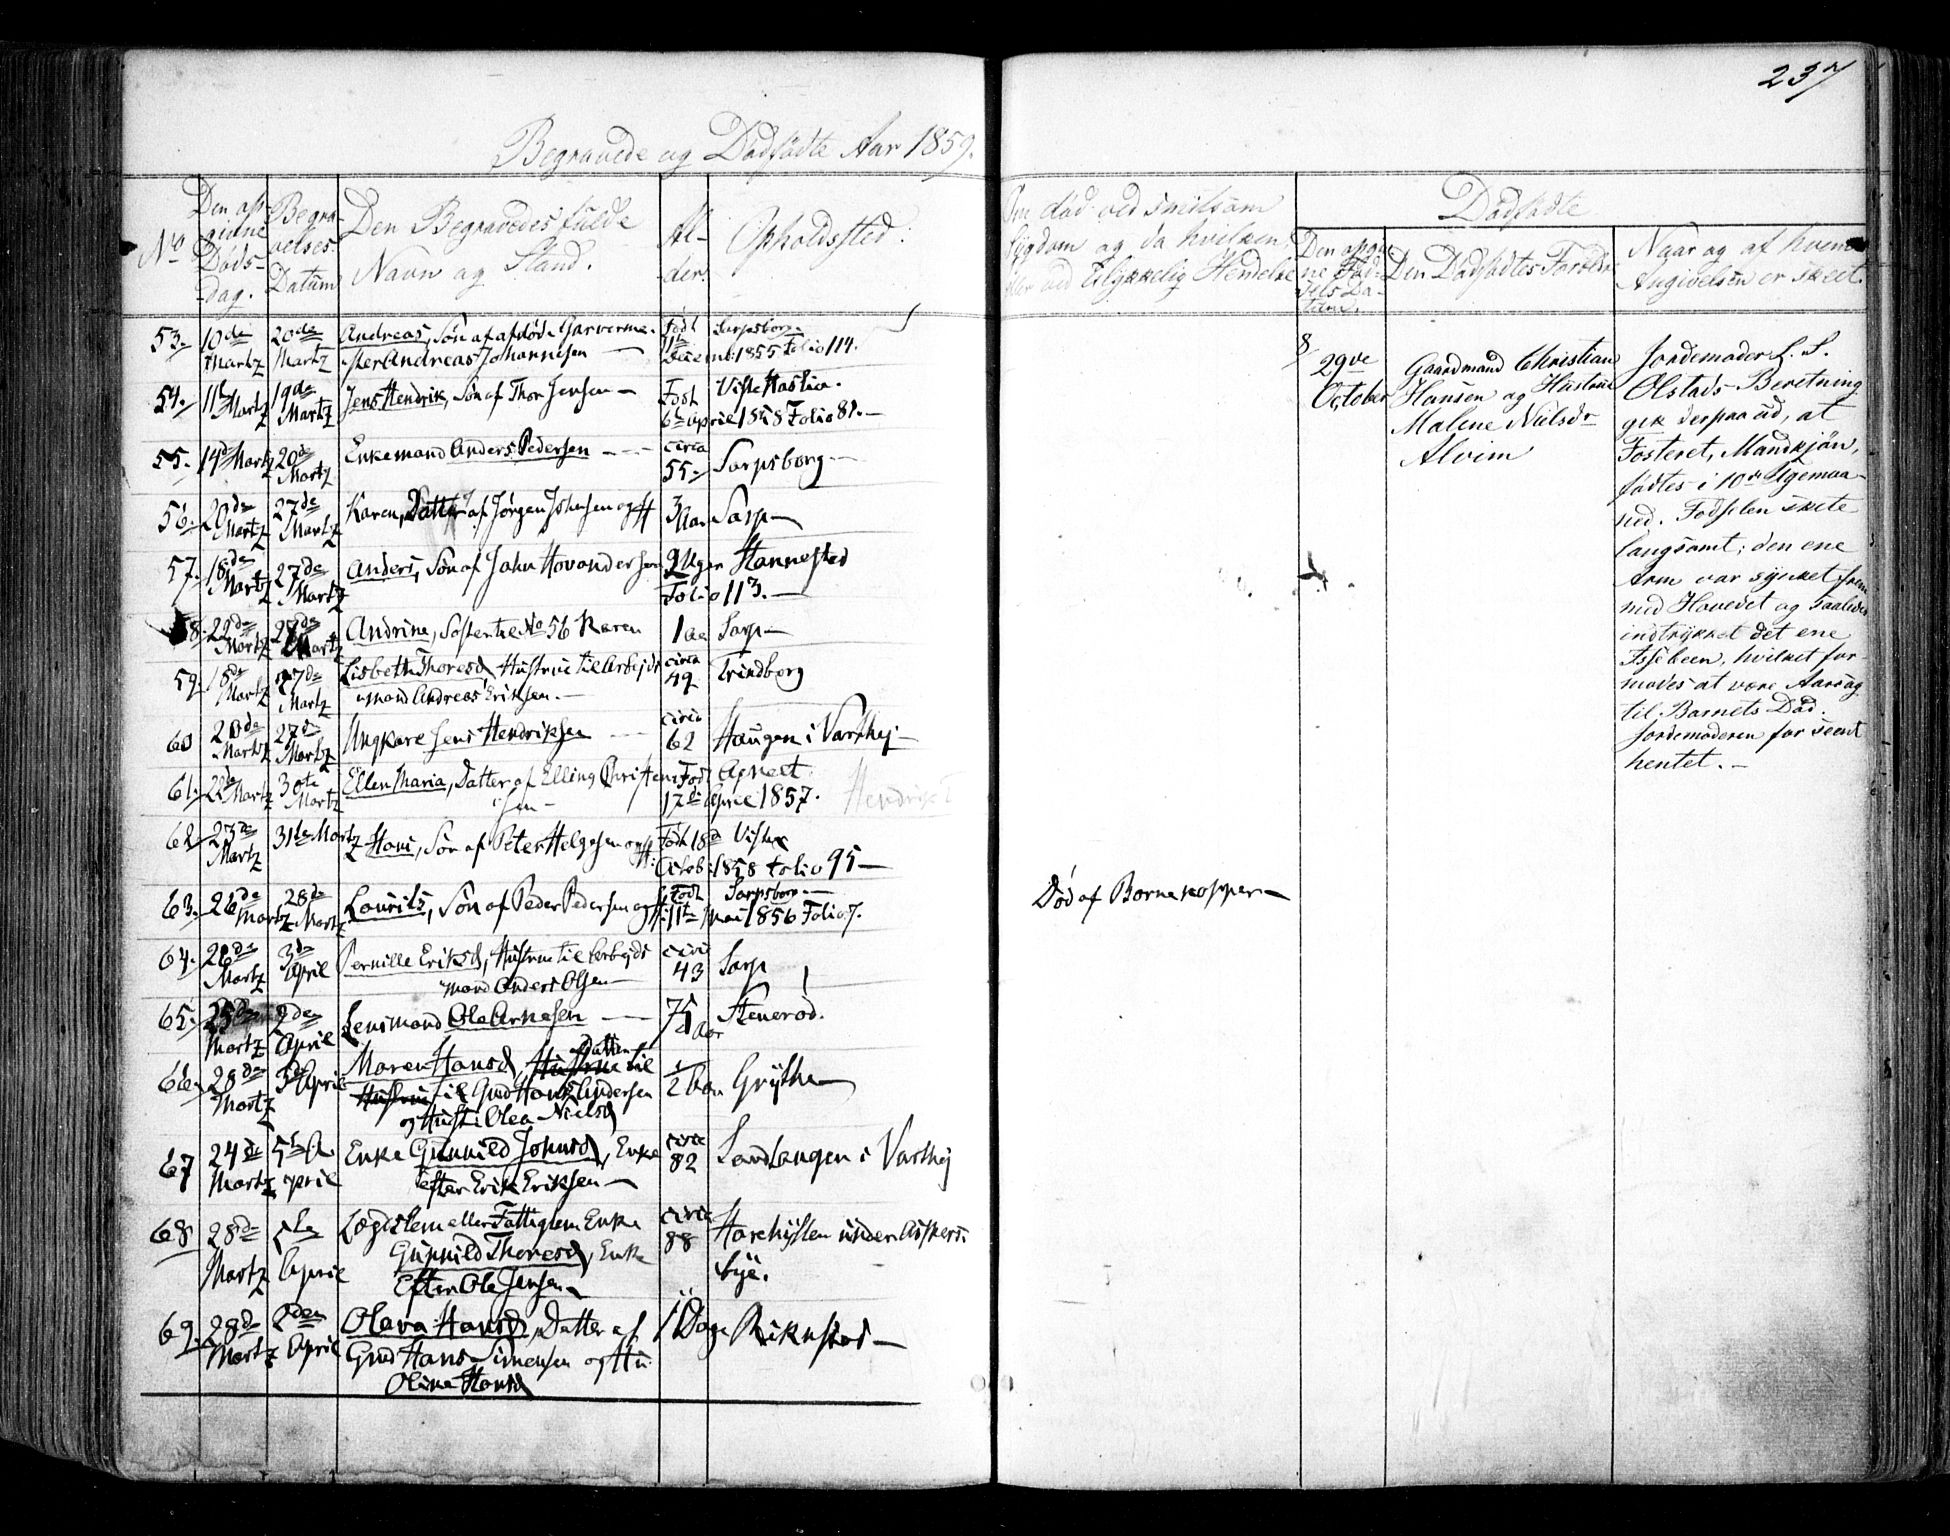 237
Begravede og Dødfødte Aar 1859.
No
Den an-
givne
Døds-
dag.
Begra-
velses
Datum
Den Begravedes fulde
Navn og Stand.
Al-
der.
Opholdssted.
Om død ved smitsom
Sygdom og da hvilken,
eller ved Ulykkelig Hendelse
Dødfødte
Den angiv-
ne Fød-
sels Da-
tum.
Den Dødfødtes Foreldre
Naar og af hvem
Angivelsen er skeet.
53. 10de Martz 20de Martz Andreas, Søn af afdøde Garverme- Født Sarpsborg.
ster Andreas Johannesen — 11te Decemb: 1855 Folio 114.
54. 11te Martz 19de Martz Jens Hendrik, Søn af Thor Jensen — Født Viste Haslia.
6te April 1858 Folio 81. —
55. 14de Martz 20de Martz Enkemand Anders Pedersen — circa 55. Sarpsborg —
56. 20de Martz 27de Martz Karen, Datter af Jørgen Johnsen og H 3 Aar Sarp —
57. 18de Martz 27de Martz Anders, Søn af John Hovandersen 9 Uger Hannestad
Folio 113. —
58. 22de Martz 27de Martz Andrine, Søster til No 56 Karen 1 Aar Sarp —
59. 18de Martz 27de Martz Lisbeth Thoresd, Hustrue til Arbejds circa 49 Trindborg
mand Andreas Eriksen. —
60 20de Martz 27de Martz Ungkarl Jens Hendriksen — circa 62 Haugen i Varthej —
61. 22de Martz 30te Martz Ellen Maria, Datter af Elling Christen Født Agneet
sen — 17de April 1857.
62. 23de Martz 31te Martz Hans, Søn af Peter Helgesen og H: Født 18de Viste
Octob: 1858 Folio 95 —
63. 26de Martz 28de Martz Lourits, Søn af Peder Pedersen og H: Født Sarpsborg —
11te Mai 1856 Folio 7.
64. 26de Martz 3de April Pernille Eriksd, Hustrue til Arbejds circa 43 Sarp
mand Anders Olsen —
65. 25de Martz 2den April Lensmand Ole Arnesen — 75 Aar Stenerød.
66. 28de Martz 3de April Maren Hansd, Hustrue Datter til ½ Aar Grythe —
Hustrue til Gmd Hans Andersen
og Hust: Olea Nielsd
67 24de Martz 5te April Enke Gunnild Johnsd, Enke circa 82 Sandtangen i Varthej
efter Erik Eriksen —
68 28de Martz 5te April Lægdslem eller Fattiglem Enke circa 88 Harehylten under Asker-
Gunnild Thoresd, Enke bye.
Efter Ole Jensen —
69. 28de Martz 2den April Olava Hansd, Datter af 11 Dage Riknstad —
Gmd Hans Simensen og Hu:
Oline Hansd
Død af Barnekopper —
8
29de
October
Gaardmand Christian
Hansen og Hustrue
Malene Nielsdr
Alvim
Jordemoder L. S.
Olstads Beretning
gik derpaa ud, at
Fosteret, Mandkjøn,
fødtes i 10de Ugemaa-
ned. Fødselen skete
langsomt; den ene
Arm var synket frem
med Hovedet og saaledes
indtrykket det ene
Issebeen, hvilket for-
modes at være Aarsag
til Barnets Død.
Jordemoderen for seent
hentet. —